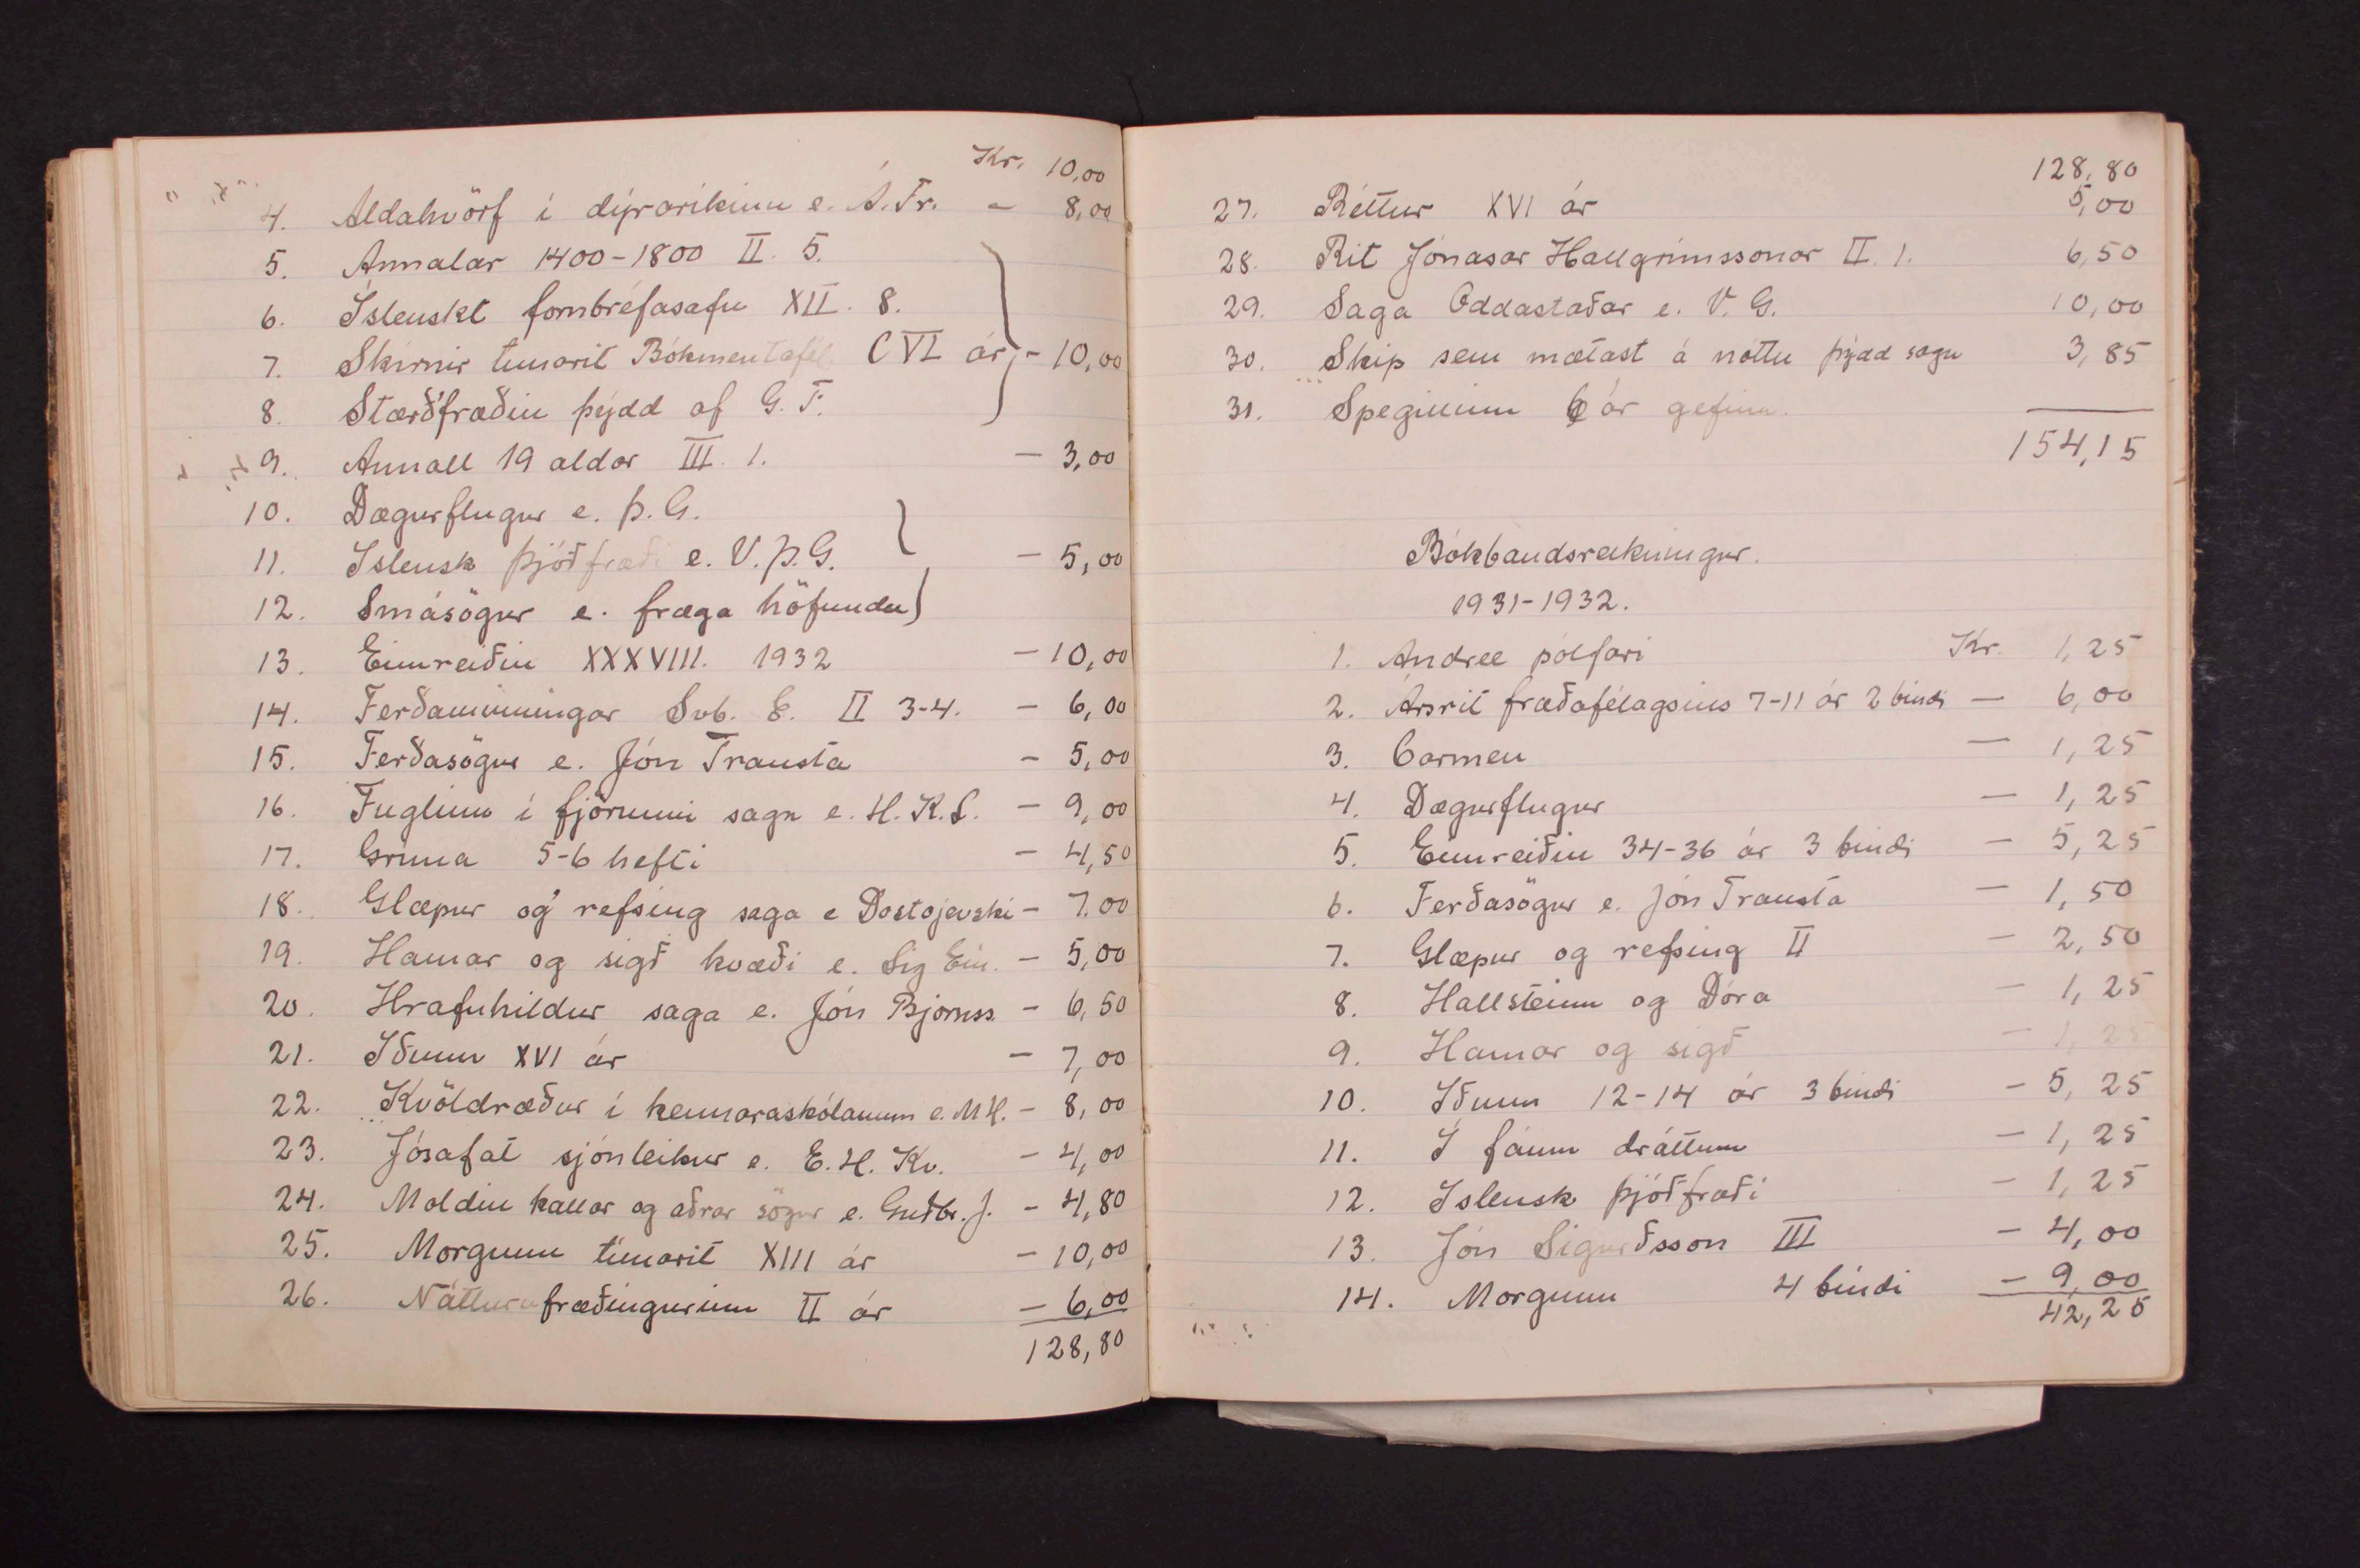 Kr. 10,00
4. Aldahvörf í dýraríkinu e. Á. Fr. - 8,00
5. Annalar 1400-1800 II. 5.
6. Íslenskt fornbréfasafn XII. 8.
7. Skírnir tímarit Bókmentafél. CVI ár, - 10,00
8. Stærðfræðin þýdd af G. F.
9. Annall 19 aldar III. 1. - 3,00
10. Dægurflugur e. Þ. G.
11. Islensk þjóðfræði e. V. Þ. G. - 5,00
12. Smásögur e. fræga höfunda
13. Eimreiðin XXXVIII. 1932 - 10,00
14. Ferðaminningar Svb. E. II 3-4. - 6,00
15. Ferðasögur e. Jón Trausta - 5,00
16. Fuglinn í fjörunni saga e. H. K. L. - 9,00
17. Gríma 5-6 hefti - 4,50
18. Glæpur og refsing saga e Dostojevski - 7.00
19. Hamar og sigð kvæði e. Sig Ein. - 5,00
20. Hrafnhildur saga e. Jón Bjornss. - 6,50
21. Iðunn XVI ár - 7,00
22. Kvöldræður í kennaraskólanum e. M H. - 8,00
23. Jósafat sjónleikur e. E. H. Kv. - 4,00
24. Moldin kallar og aðrar sögur e. Guðbr. J. - 4,80
25. Morgunn tímarit XIII ár - 10,00
26. Nátturufræðingurinn II ár - 6,00
128,80
128,80
27. Réttur XVI ár 5,00
28. Rit Jónasar Hallgrímssonar II. 1. 6,50
29. Saga Oddastaðar e. V. G. 10,00
30. Skip sem mætast á nóttu þýdd saga 3,85
31. Spegillinn 6 ár gefinn.
154,15
Bókbandsreikningur.
1931-1932.
1. Andree pólfari Kr. 1,25
2. Ársrit fræðafélagsins 7-11 ár 2 bindi - 6,00
3. Carmen - 1,25
4. Dægurflugur - 1,25
5. Eimreiðin 34-36 ár 3 bindi - 5,25
6. Ferðasögur e. Jón Trausta - 1,50
7. Glæpur og refsing II - 2,50
8. Hallsteinn og Dóra - 1,25
9. Hamar og sigð - 1,25
10. Iðunn 12-14 ár 3 bindi - 5,25
11. Í fáum dráttum - 1,25
12. Islensk þjóðfræði - 1,25
13. Jón Sigurðsson III - 4,00
14. Morgunn 4 bindi - 9,00
42,25